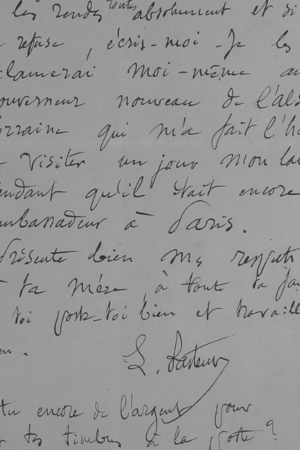 les rendes toutes absolument et si
refuse, écris-moi. Je les
clamerai moi-même au
ouverneur nouveau de l'Als
orraine qui m'a fait l'h
visiter un jour mon la
endant qu'il était encore
mbassadeur à Paris.
Présente bien mes respects
ta mère à tout ta fa
toi porte-toi bien et travaille
en.
L. Pasteur
tu encore de l'argent pour
tes timbres à la poste?